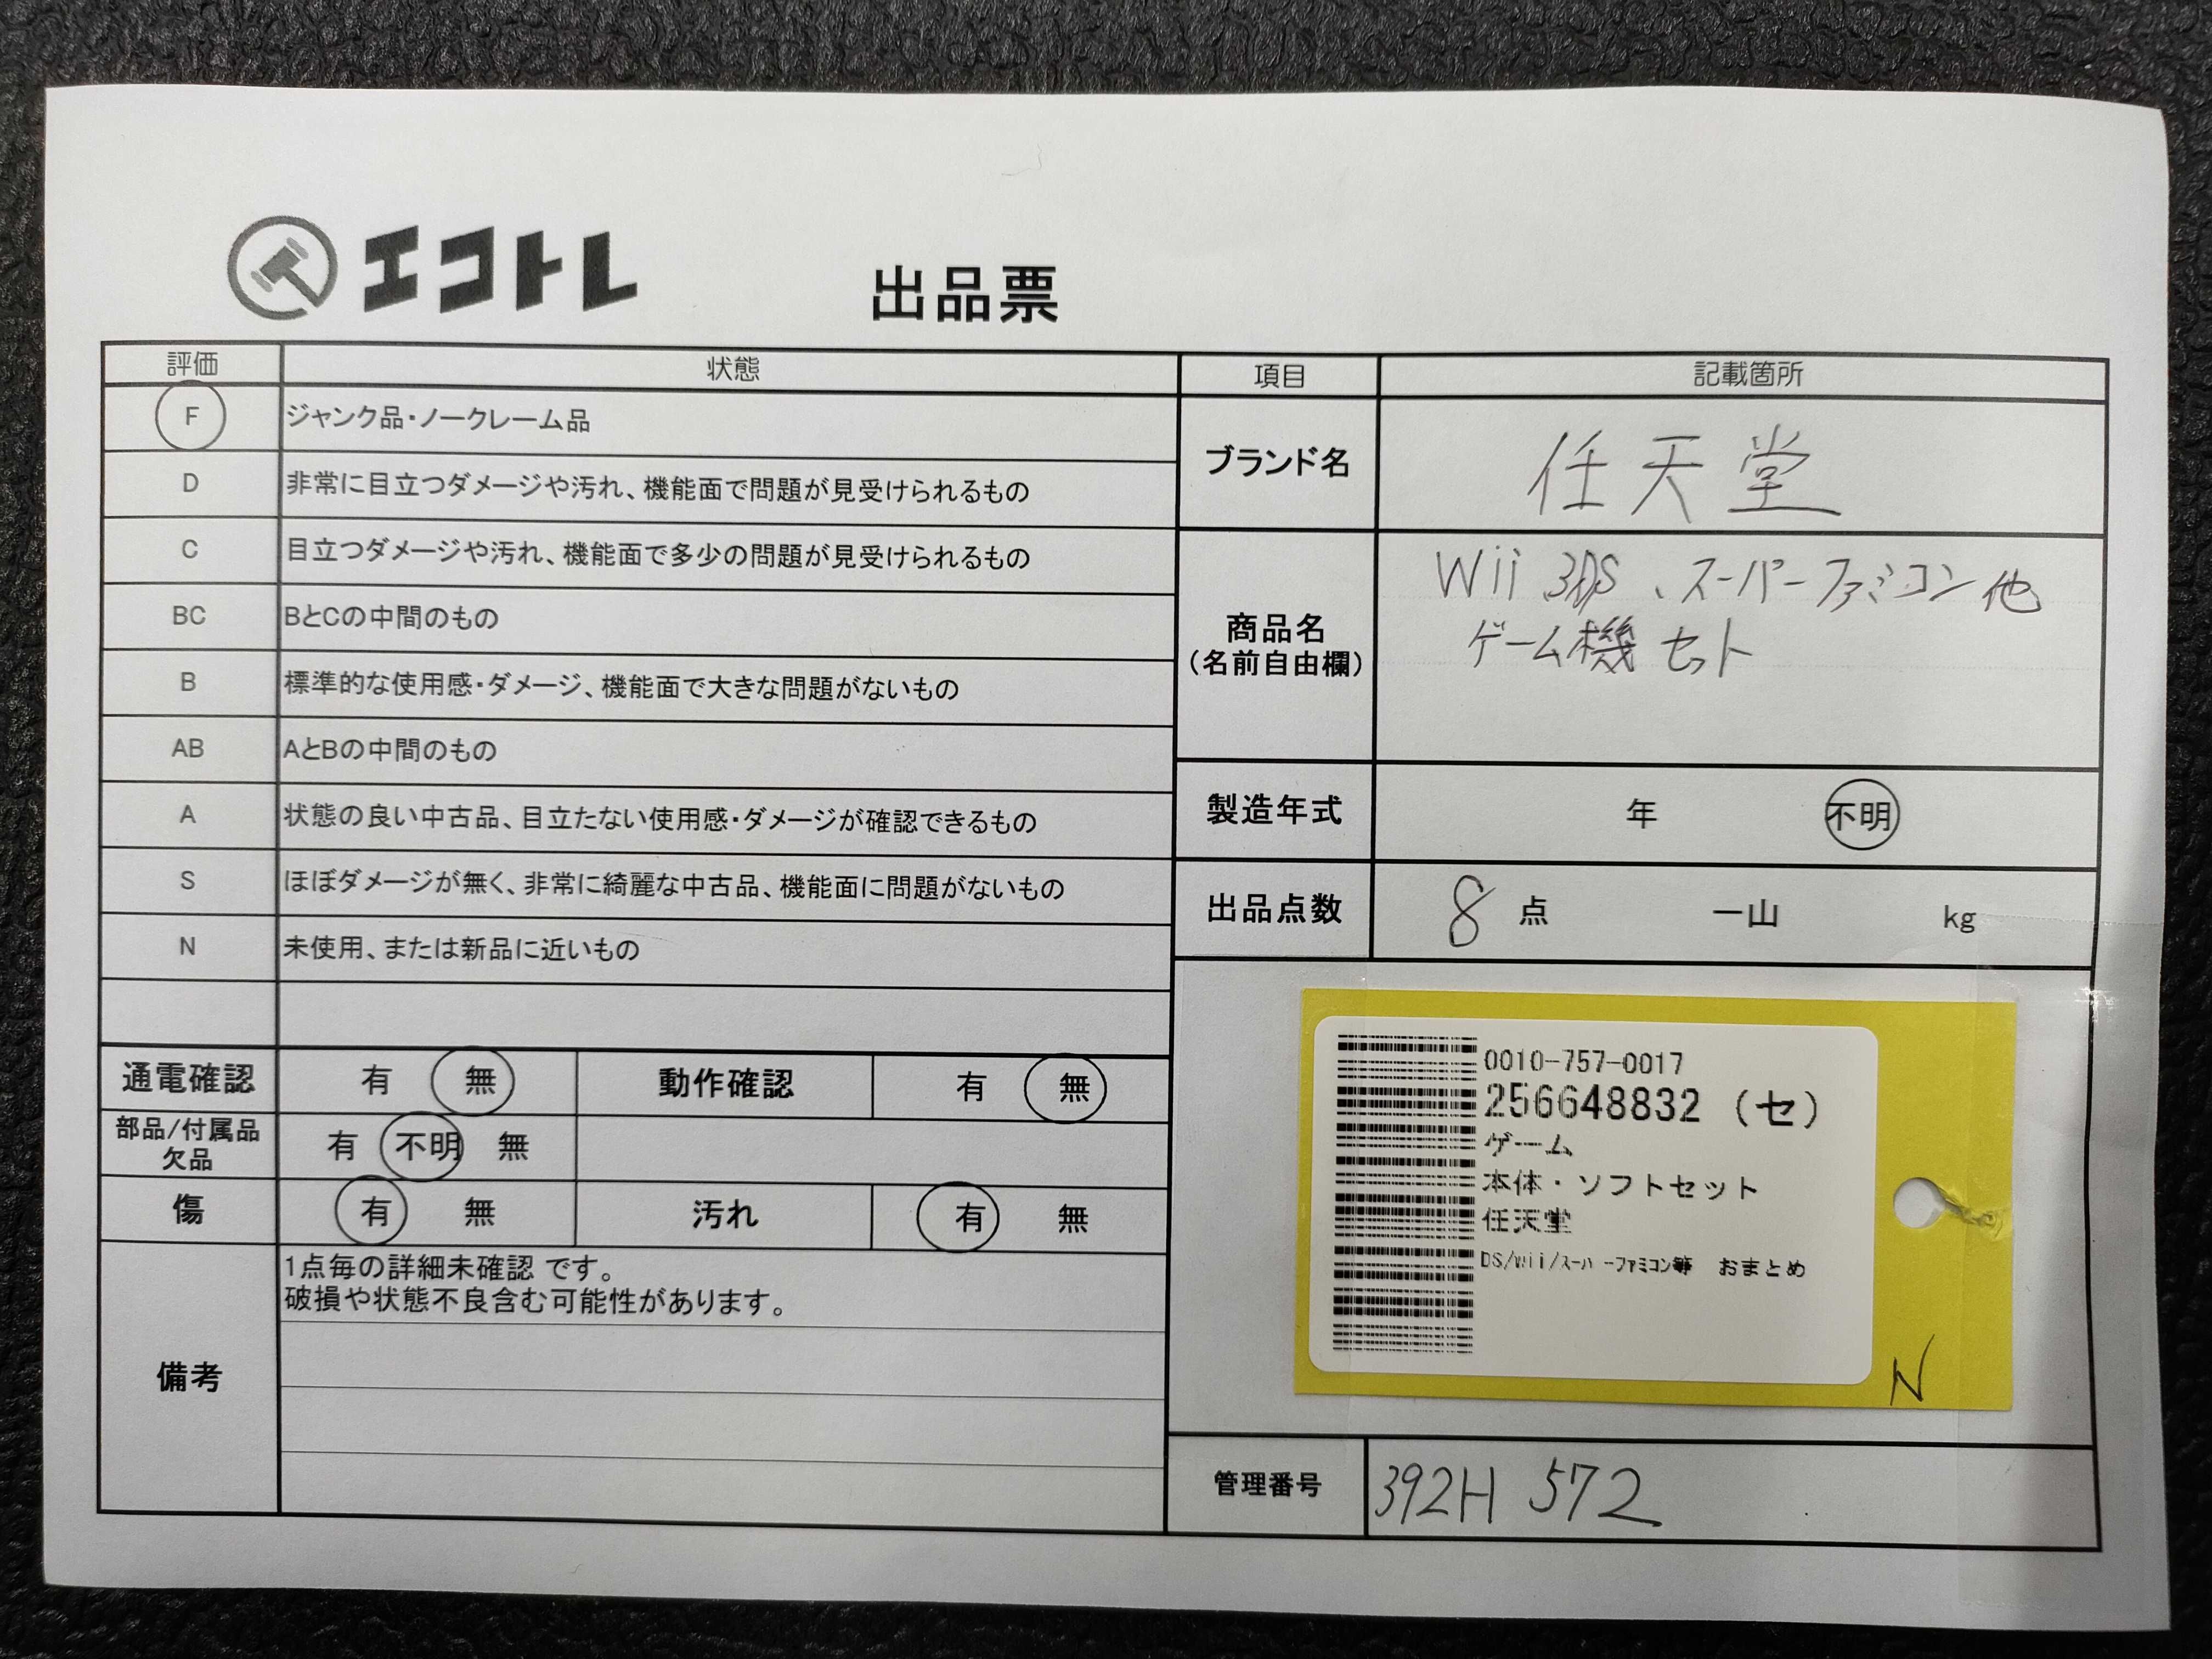 エコトレ
出品票
評価 状態
F ジャンク品・ノークレーム品
D 非常に目立つダメージや汚れ、機能面で問題が見受けられるもの
C 目立つダメージや汚れ、機能面で多少の問題が見受けられるもの
BC BとCの中間のもの
B 標準的な使用感・ダメージ、機能面で大きな問題がないもの
AB AとBの中間のもの
A 状態の良い中古品、目立たない使用感・ダメージが確認できるもの
S ほぼダメージが無く、非常に綺麗な中古品、機能面に問題がないもの
N 未使用、または新品に近いもの
通電確認 有 無 動作確認 有 無
部品/付属品
欠品
有 不明 無
傷 有 無 汚れ 有 無
備考
1点毎の詳細未確認 です。
破損や状態不良含む可能性があります。
項目 記載箇所
ブランド名 任天堂
商品名
(名前自由欄)
Wii 3DS、スーパーファミコン他
ゲーム機 セット
製造年式 年 不明
出品点数 8 点 一山 kg
0010-757-0017
256648832 (セ)
ゲーム
本体・ソフトセット
任天堂
DS/wii/スーパーファミコン等 おまとめ
N
管理番号 392H 572